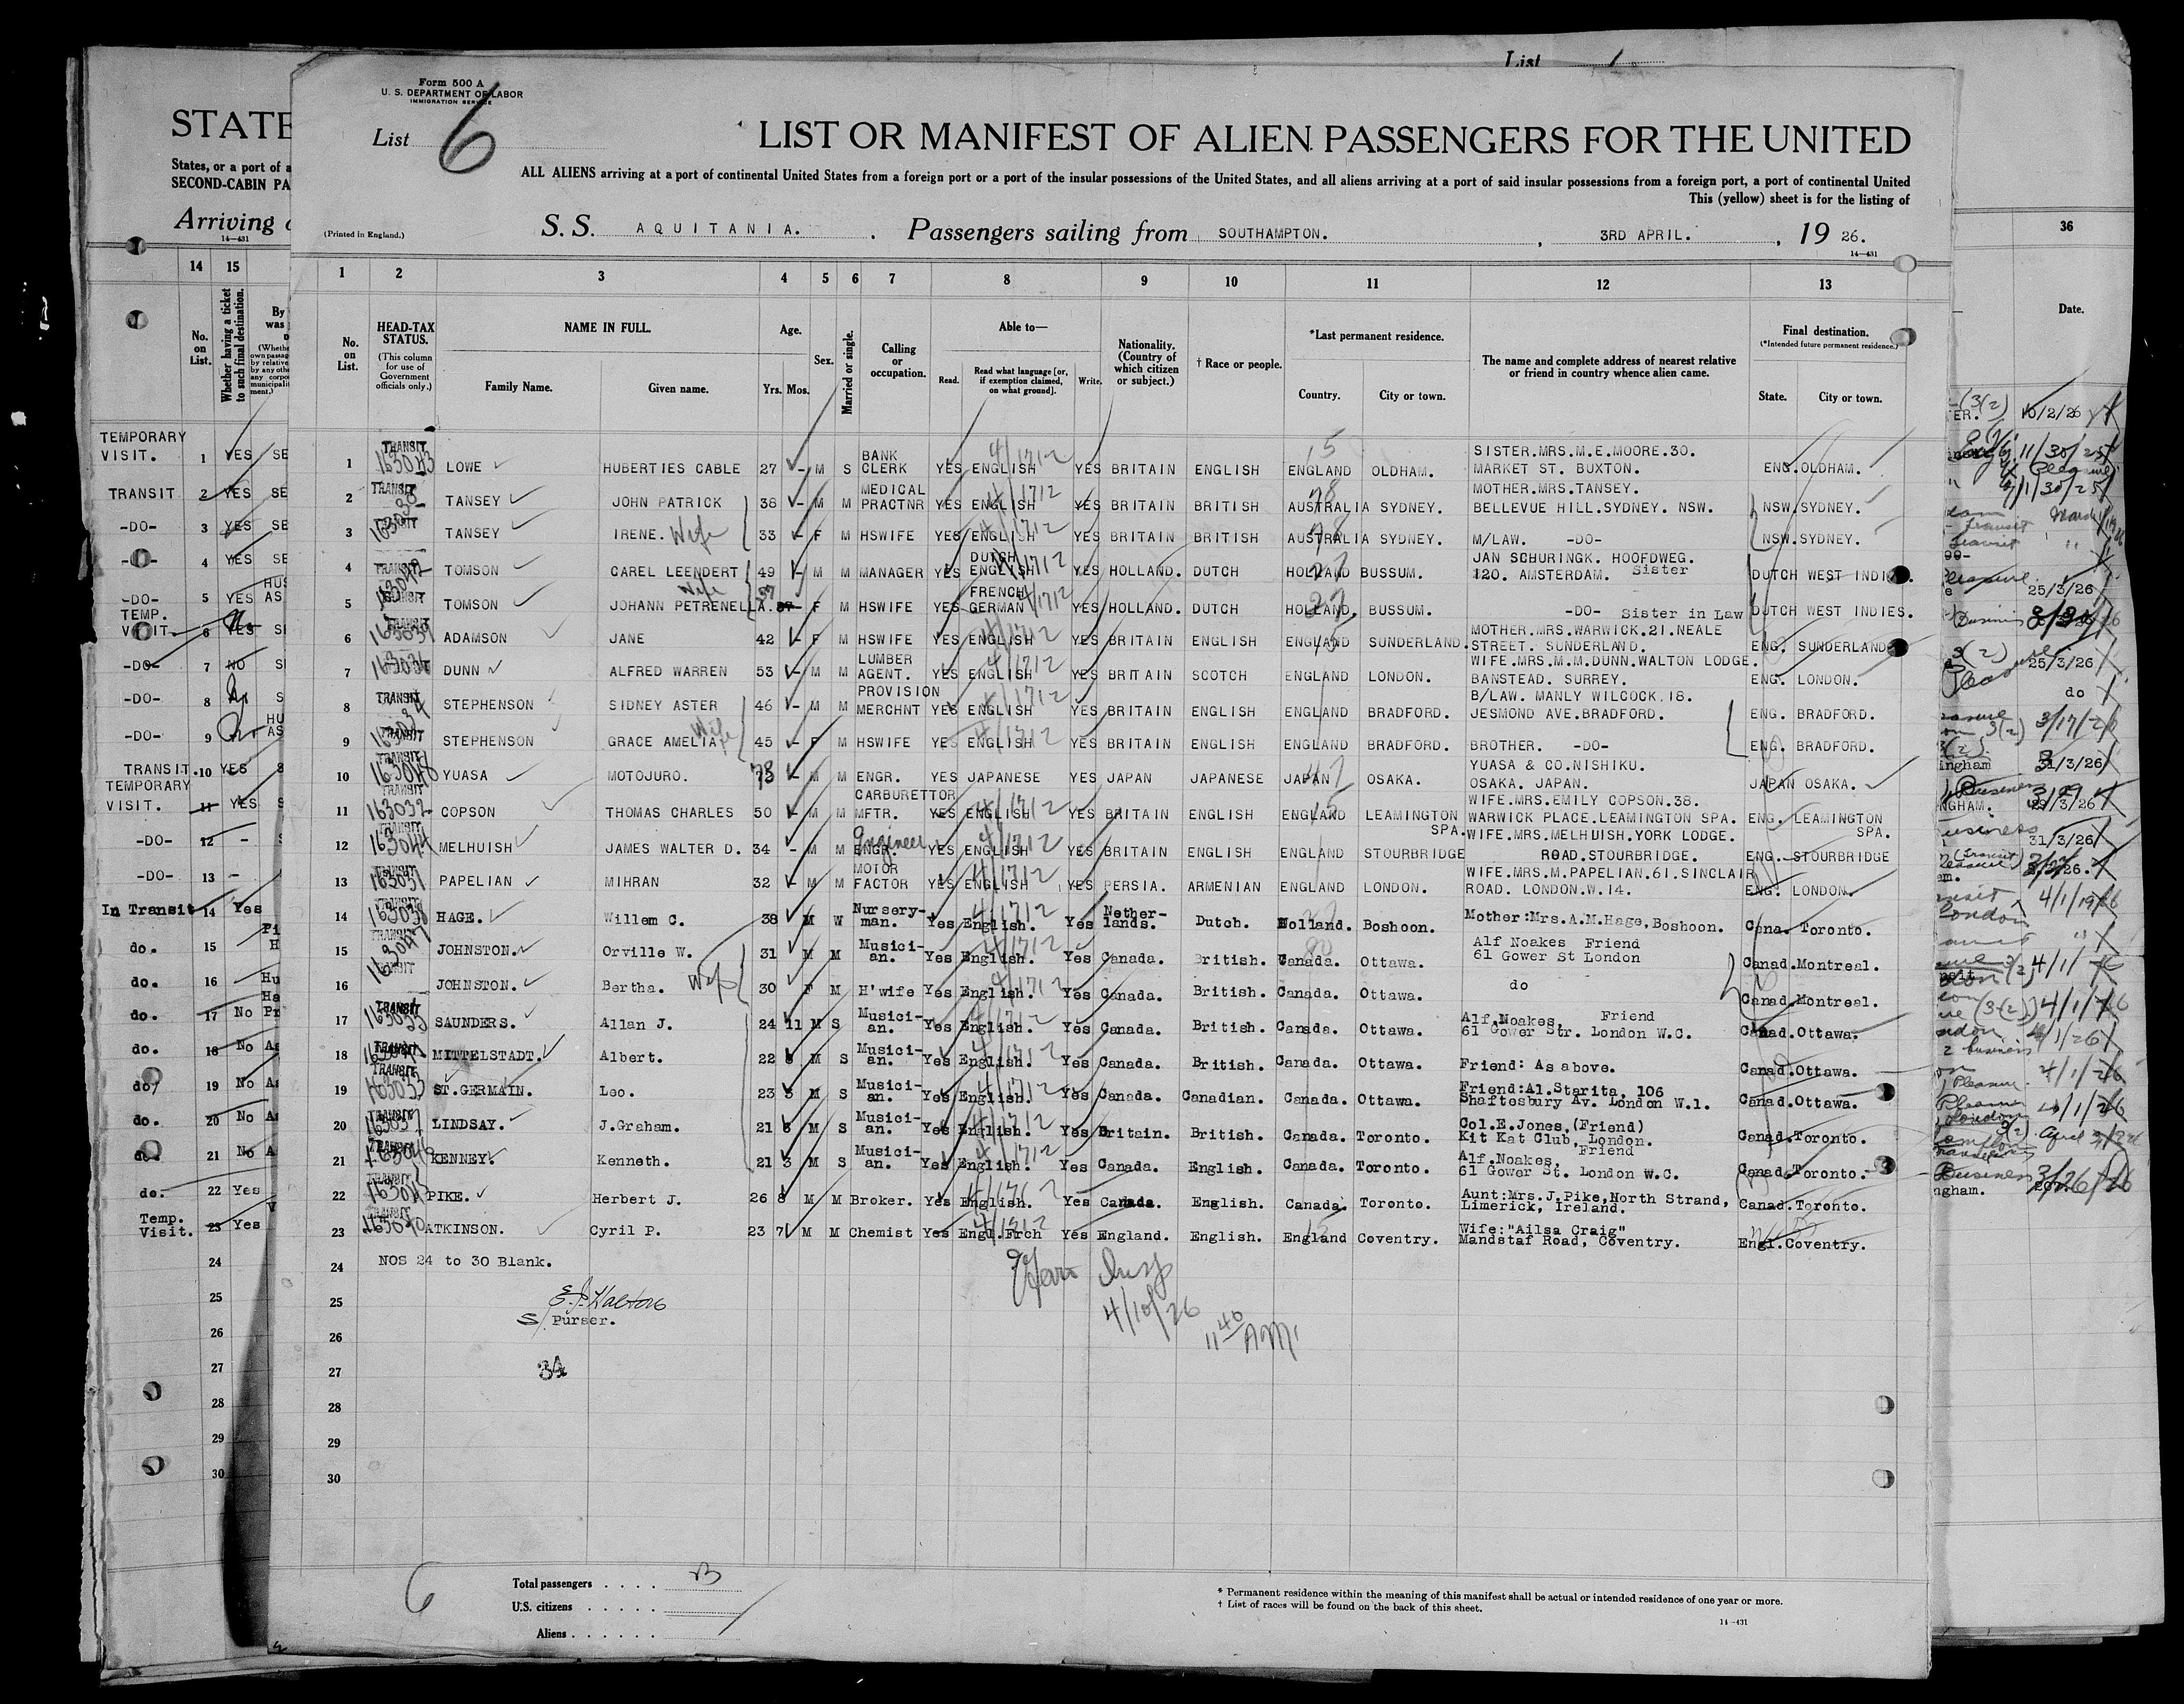 List 1
Form 500 A
U. S. DEPARTMENT OF LABOR
IMMIGRATION SERVICE
List 6
LIST OR MANIFEST OF ALIEN PASSENGERS FOR THE UNITED
ALL ALIENS arriving at a port of continental United States from a foreign port or a port of the insular possessions of the United States, and all aliens arriving at a port of said insular possessions from a foreign port, a port of continental United
This (yellow) sheet is for the listing of
(Printed in England.)
S. S. AQUITANIA. Passengers sailing from SOUTHAMPTON. , 3RD APRIL. , 19 26.
14—431
1 2 3 4 5 6 7 8 9 10 11 12 13
No. on List.
HEAD-TAX STATUS.
(This column for use of Government officials only.)
NAME IN FULL.
Family Name. Given name.
Age.
Yrs. Mos.
Sex.
Married or single.
Calling or occupation.
Able to—
Read. Read what language [or, if exemption claimed, on what ground]. Write.
Nationality. (Country of which citizen or subject.)
† Race or people.
*Last permanent residence.
Country. City or town.
The name and complete address of nearest relative or friend in country whence alien came.
Final destination.
(*Intended future permanent residence.)
State. City or town.
1 TRANSIT 163043 LOWE HUBERTIES CABLE 27 - M S BANK CLERK YES ENGLISH YES BRITAIN ENGLISH ENGLAND OLDHAM. SISTER.MRS.M.E.MOORE.30. MARKET ST. BUXTON. ENG.OLDHAM.
2 TRANSIT TANSEY JOHN PATRICK 38 - M M MEDICAL PRACTNR YES ENGLISH YES BRITAIN BRITISH AUSTRALIA SYDNEY. MOTHER.MRS.TANSEY. BELLEVUE HILL.SYDNEY. NSW. NSW.SYDNEY.
3 TANSEY IRENE. Wife 33 - F M HSWIFE YES ENGLISH YES BRITAIN BRITISH AUSTRALIA SYDNEY. M/LAW. -DO- NSW.SYDNEY.
4 TOMSON CAREL LEENDERT 49 - M M MANAGER YES DUTCH ENGLISH YES HOLLAND. DUTCH HOLLAND BUSSUM. JAN SCHURINGK. HOOFDWEG. 120. AMSTERDAM. Sister DUTCH WEST INDIES.
5 TOMSON JOHANN PETRENELLA. Wife 37 F M HSWIFE YES FRENCH GERMAN YES HOLLAND. DUTCH HOLLAND. BUSSUM. -DO- Sister in Law DUTCH WEST INDIES.
6 TRANSIT ADAMSON JANE 42 - F M HSWIFE YES ENGLISH YES BRITAIN ENGLISH ENGLAND SUNDERLAND. MOTHER.MRS.WARWICK.21.NEALE STREET. SUNDERLAND. ENG. SUNDERLAND
7 163036 DUNN ALFRED WARREN 53 - M M LUMBER AGENT. YES ENGLISH YES BRITAIN SCOTCH ENGLAND LONDON. WIFE.MRS.M.M.DUNN.WALTON LODGE. BANSTEAD. SURREY. ENG. LONDON.
8 TRANSIT STEPHENSON SIDNEY ASTER 46 - M M PROVISION MERCHNT YES ENGLISH YES BRITAIN ENGLISH ENGLAND BRADFORD. B/LAW. MANLY WILCOCK.18. JESMOND AVE.BRADFORD. ENG. BRADFORD.
9 STEPHENSON GRACE AMELIA Wife 45 - F M HSWIFE YES ENGLISH YES BRITAIN ENGLISH ENGLAND BRADFORD. BROTHER. -DO- ENG. BRADFORD.
10 TRANSIT YUASA MOTOJURO. M M ENGR. YES JAPANESE YES JAPAN JAPANESE JAPAN OSAKA. YUASA & CO.NISHIKU. OSAKA. JAPAN. JAPAN OSAKA.
11 TRANSIT 163032 COPSON THOMAS CHARLES 50 - M M CARBURETTOR MFTR. YES ENGLISH YES BRITAIN ENGLISH ENGLAND LEAMINGTON SPA. WIFE.MRS.EMILY COPSON.38. WARWICK PLACE.LEAMINGTON SPA. ENG. LEAMINGTON SPA.
12 TRANSIT 163044 MELHUISH JAMES WALTER D. 34 - M M Engineer ENGR. YES ENGLISH YES BRITAIN ENGLISH ENGLAND STOURBRIDGE WIFE.MRS.MELHUISH.YORK LODGE. ROAD.STOURBRIDGE. ENG. STOURBRIDGE
13 163031 PAPELIAN MIHRAN 32 - M M MOTOR FACTOR YES ENGLISH YES PERSIA. ARMENIAN ENGLAND LONDON. WIFE.MRS.M.PAPELIAN.61.SINCLAIR ROAD. LONDON.W.14. ENG. LONDON.
14 TRANSIT 163038 HAGE. Willem C. 38 M W Nursery-man. Yes English. Yes Nether-lands. Dutch. Holland. Boshoon. Mother:Mrs.A.M.Hage,Boshoon. Cana. Toronto.
15 TRANSIT 163047 JOHNSTON. Orville W. 31 M M Musici-an. Yes English. Yes Canada. British. Canada. Ottawa. Alf Noakes Friend 61 Gower St London Canad.Montreal.
16 JOHNSTON. Bertha. Wife 30 F M H'wife Yes English. Yes Canada. British. Canada. Ottawa. do Canad.Montreal.
17 TRANSIT 163035 SAUNDERS. Allan J. 24 11 M S Musici-an. Yes English. Yes Canada. British. Canada. Ottawa. Alf.Noakes, Friend 61 Gower Str. London W.C. Canad.Ottawa.
18 TRANSIT MITTELSTADT. Albert. 22 8 M S Musici-an. Yes English. Yes Canada. British. Canada. Ottawa. Friend: As above. Canad.Ottawa.
19 TRANSIT 163033 ST.GERMAIN. Leo. 23 5 M S Musici-an. Yes English. Yes Canada. Canadian. Canada. Ottawa. Friend:Al.Starita, 106 Shaftesbury Av. London W.1. Canad.Ottawa.
20 TRANSIT 163037 LINDSAY. J.Graham. 21 6 M S Musici-an. Yes English. Yes Britain. British. Canada. Toronto. Col.E.Jones,(Friend) Kit Kat Club, London. Canad.Toronto.
21 TRANSIT 163046 KENNEY. Kenneth. 21 3 M S Musici-an. Yes English. Yes Canada. English. Canada. Toronto. Alf.Noakes, Friend 61 Gower St. London W.C. Canad.Toronto.
22 TRANSIT PIKE. Herbert J. 26 8 M M Broker. Yes English. Yes Canada. English. Canada. Toronto. Aunt:Mrs.J.Pike,North Strand, Limerick, Ireland. Canad.Toronto.
23 TRANSIT ATKINSON. Cyril P. 23 7 M M Chemist Yes Engl.Frch Yes England. English. England Coventry. Wife:"Ailsa Craig" Mandstaf Road, Coventry. Engl.Coventry.
24 NOS 24 to 30 Blank.
25
S/ Purser.
26
27 34
28
29
30
4/10/26
11 40 AM
6
Total passengers . . . .
U.S. citizens . . . . .
Aliens . . . . . .
* Permanent residence within the meaning of this manifest shall be actual or intended residence of one year or more.
† List of races will be found on the back of this sheet.
14—431
STATE
States, or a port of a
SECOND-CABIN PA
Arriving
14—431
14 15
No. on List.
Whether having a ticket to such final destination.
TEMPORARY VISIT. 1 YES SE
TRANSIT 2 YES SE
-DO- 3 YES SE
4 YES SE
-DO- 5 YES HUS AS
TEMP. VISIT. 6 YES SE
-DO- 7 NO
-DO- 8
-DO- 9
TRANSIT. 10 YES
TEMPORARY VISIT. 11 YES
-DO- 12 -
-DO- 13 -
In Transit 14 Yes
do. 15
do. 16
do. 17 No
do. 18 No
do/ 19 No
do. 20 No
do. 21 No
do. 22 Yes
Temp. Visit. 23 Yes
24
25
26
27
28
29
30
36
Date.
10/2/26
25/3/26
25/3/26
do
31/3/26
31/3/26